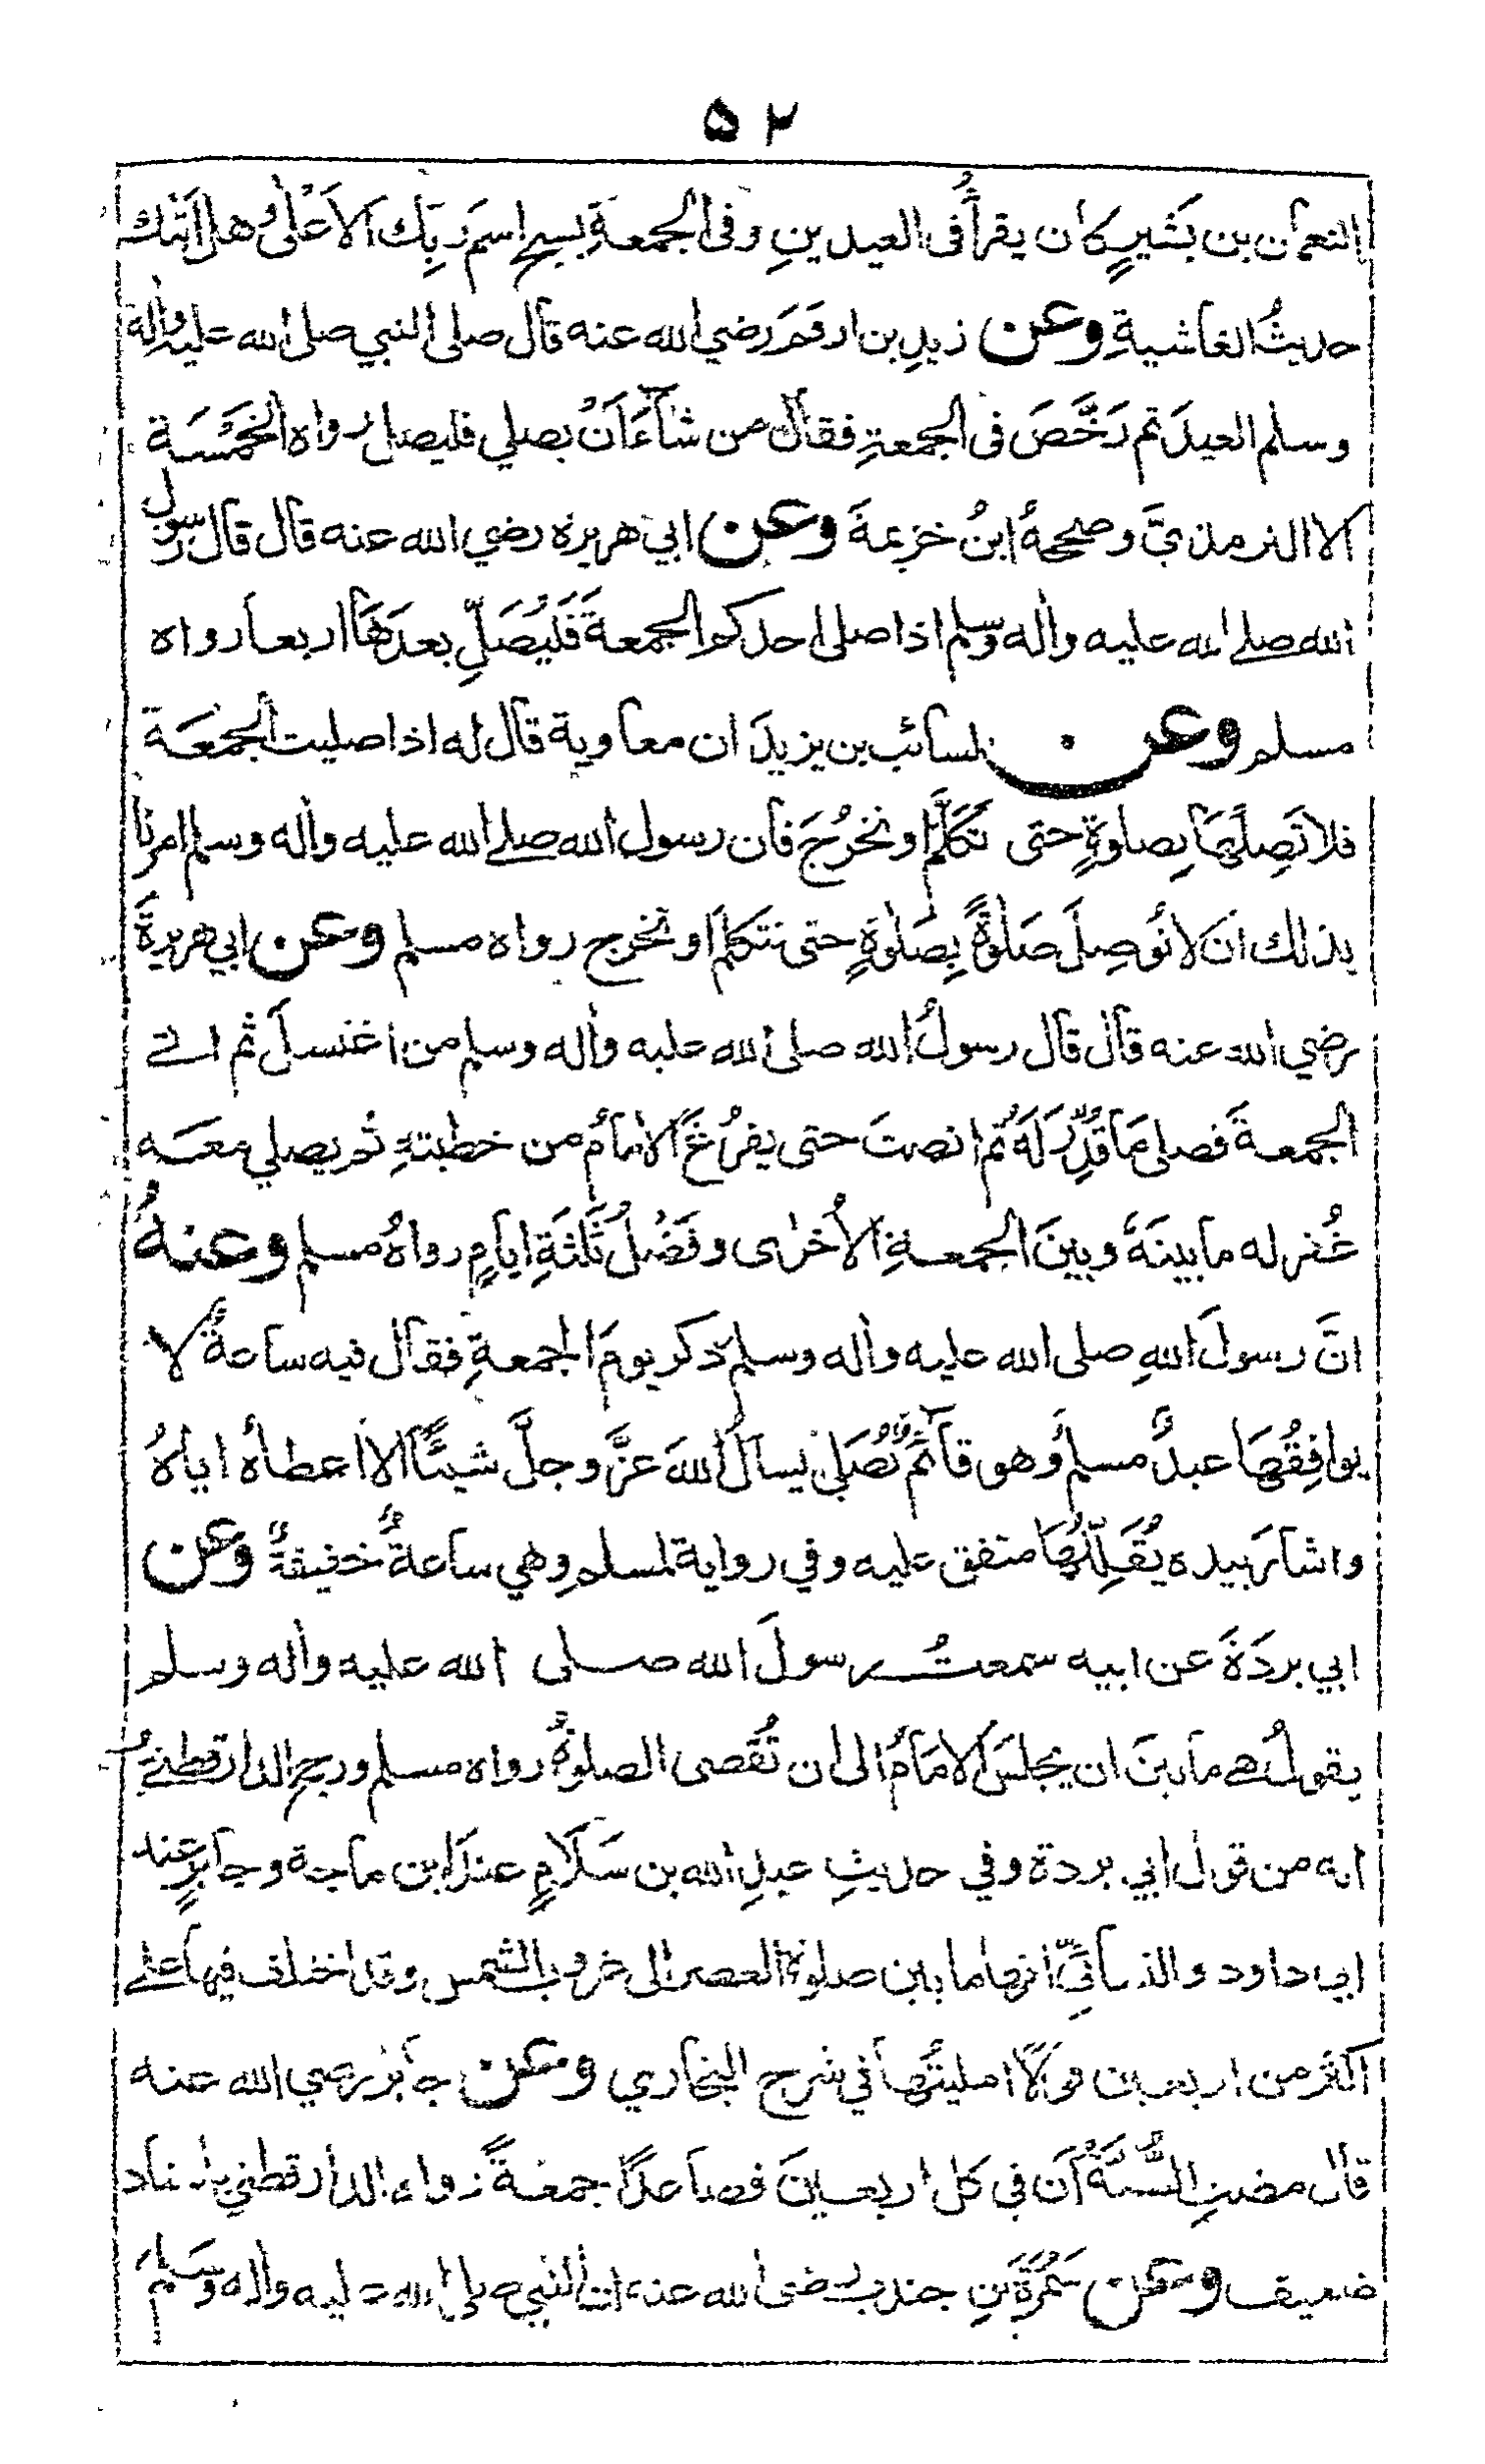 ٥٢
النعمان بن بَشيرٍ كان يقرأُ فى العيدينِ وفى الجمعةِ بسبح اسمَ رَبِّك الاَعْلٰى وهل اَتٰىك
حديثُ الغاشيةِ وعن زيدِ بن ارقمَ رضي الله عنه قال صلى النبي صلى الله عليه واٰلهٖ
وسلم العيدَ ثم رَخَّصَ فى الجمعةِ فقال من شآءَ اَنْ يصلي فليصل رواه الخَمْسَة
الا الترمذيَّ وصححهُ ابنُ خزيمةَ وعن ابي هريرة رضي الله عنه قال قال رسول
الله صلے الله عليه واٰله وسلم اذا صلى احدكم الجمعةَ فَليُصَلِّ بعدَهَا اربعا رواه
مسلم وعن السائب بن يزيدَ ان معاوية قال له اذا صليت الجمعَة
فلا تَصِلْهَا بِصلوةٍ حتى تَكَلَّمَ او تخرُجَ فان رسول الله صلے الله عليه واٰله وسلم امرنا
بذلك ان لا نُوصِلَ صَلوةً بِصَلوةٍ حتى نتكلمَ او نخرج رواه مسلم وعن ابي هريرةَ
رضي الله عنه قال قال رسولُ الله صلى الله عليه واٰله وسلم من اغتسلَ ثم اتے
الجمعةَ فصلى مَا قُدِّرَ لَهُ ثم انصتَ حتى يفرُغَ الامامُ من خطبتهِ ثم يصلي معَه
غُفر له ما بينَهٗ وبينَ الجمعةِ الاُخرٰى وفَضْلُ ثَلٰثَةِ ايامٍ رواهُ مسلم وعنهُ
انَّ رسولَ اللهِ صلى الله عليه واٰله وسلم ذكر يومَ الجمعةِ فقال فيه ساعةٌ لا
يوافِقُهَا عبدٌ مسلمٌ وهو قآئمٌ يُصَلِّي يسألُ اللهَ عَزَّ وجلَّ شيئًا الا اعطاه اياهُ
واشارَ بيده يُقَلِّلُهَا متفق عليه وفي رواية لمسلم وهي ساعةٌ خفيفةٌ وعن
ابي بردَةَ عن ابيه سمعتُ رسولَ الله صلى الله عليه واٰله وسلم
يقولُ هے ما بينَ ان يجلسَ الامَامُ الى ان تُقضى الصلوةُ رواه مسلم ورجح الدارقطنےُّ
انه من قول ابي بردة وفي حديثِ عبدِ الله بن سَلَامٍ عندَ ابن ماجة وجابرٍ عند
ابي داود والنسآئيِّ انها ما بين صلوة العصر الى غروب الشمس وقد اختلف فيها على
اكثر من اربعين قولًا امليتُها في شرح البخاري وعن جابر رضي الله عنه
قال مضتِ السُّنَّةُ اَن فى كل اربعينَ فصاعدًا جمعةً رواه الدارقطني باسناد
ضعيف وعن سَمُرَةَ بنِ جندب رضى الله عنه ان النبي صلى الله عليه واٰله وسلمَ